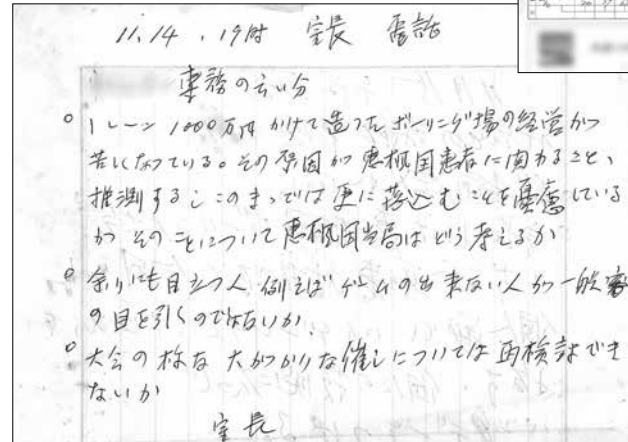 11.14.19時 室長 電話
専務の云い分
○ 1レーン1000万円かけて造ったボーリング場の経営がつ
苦しくなっている。その原因が恵楓園患者に関わること、
推測する。このまゝでは更に落込むことを憂慮している
が そのことについて恵楓園当局はどう考えるか
○ 余りにも目立つ人 例えばゲームの出来ない人が一般客
の目を引くのではないか
○ 大会の様な大がかりな催しについては再検討でき
ないか
室長